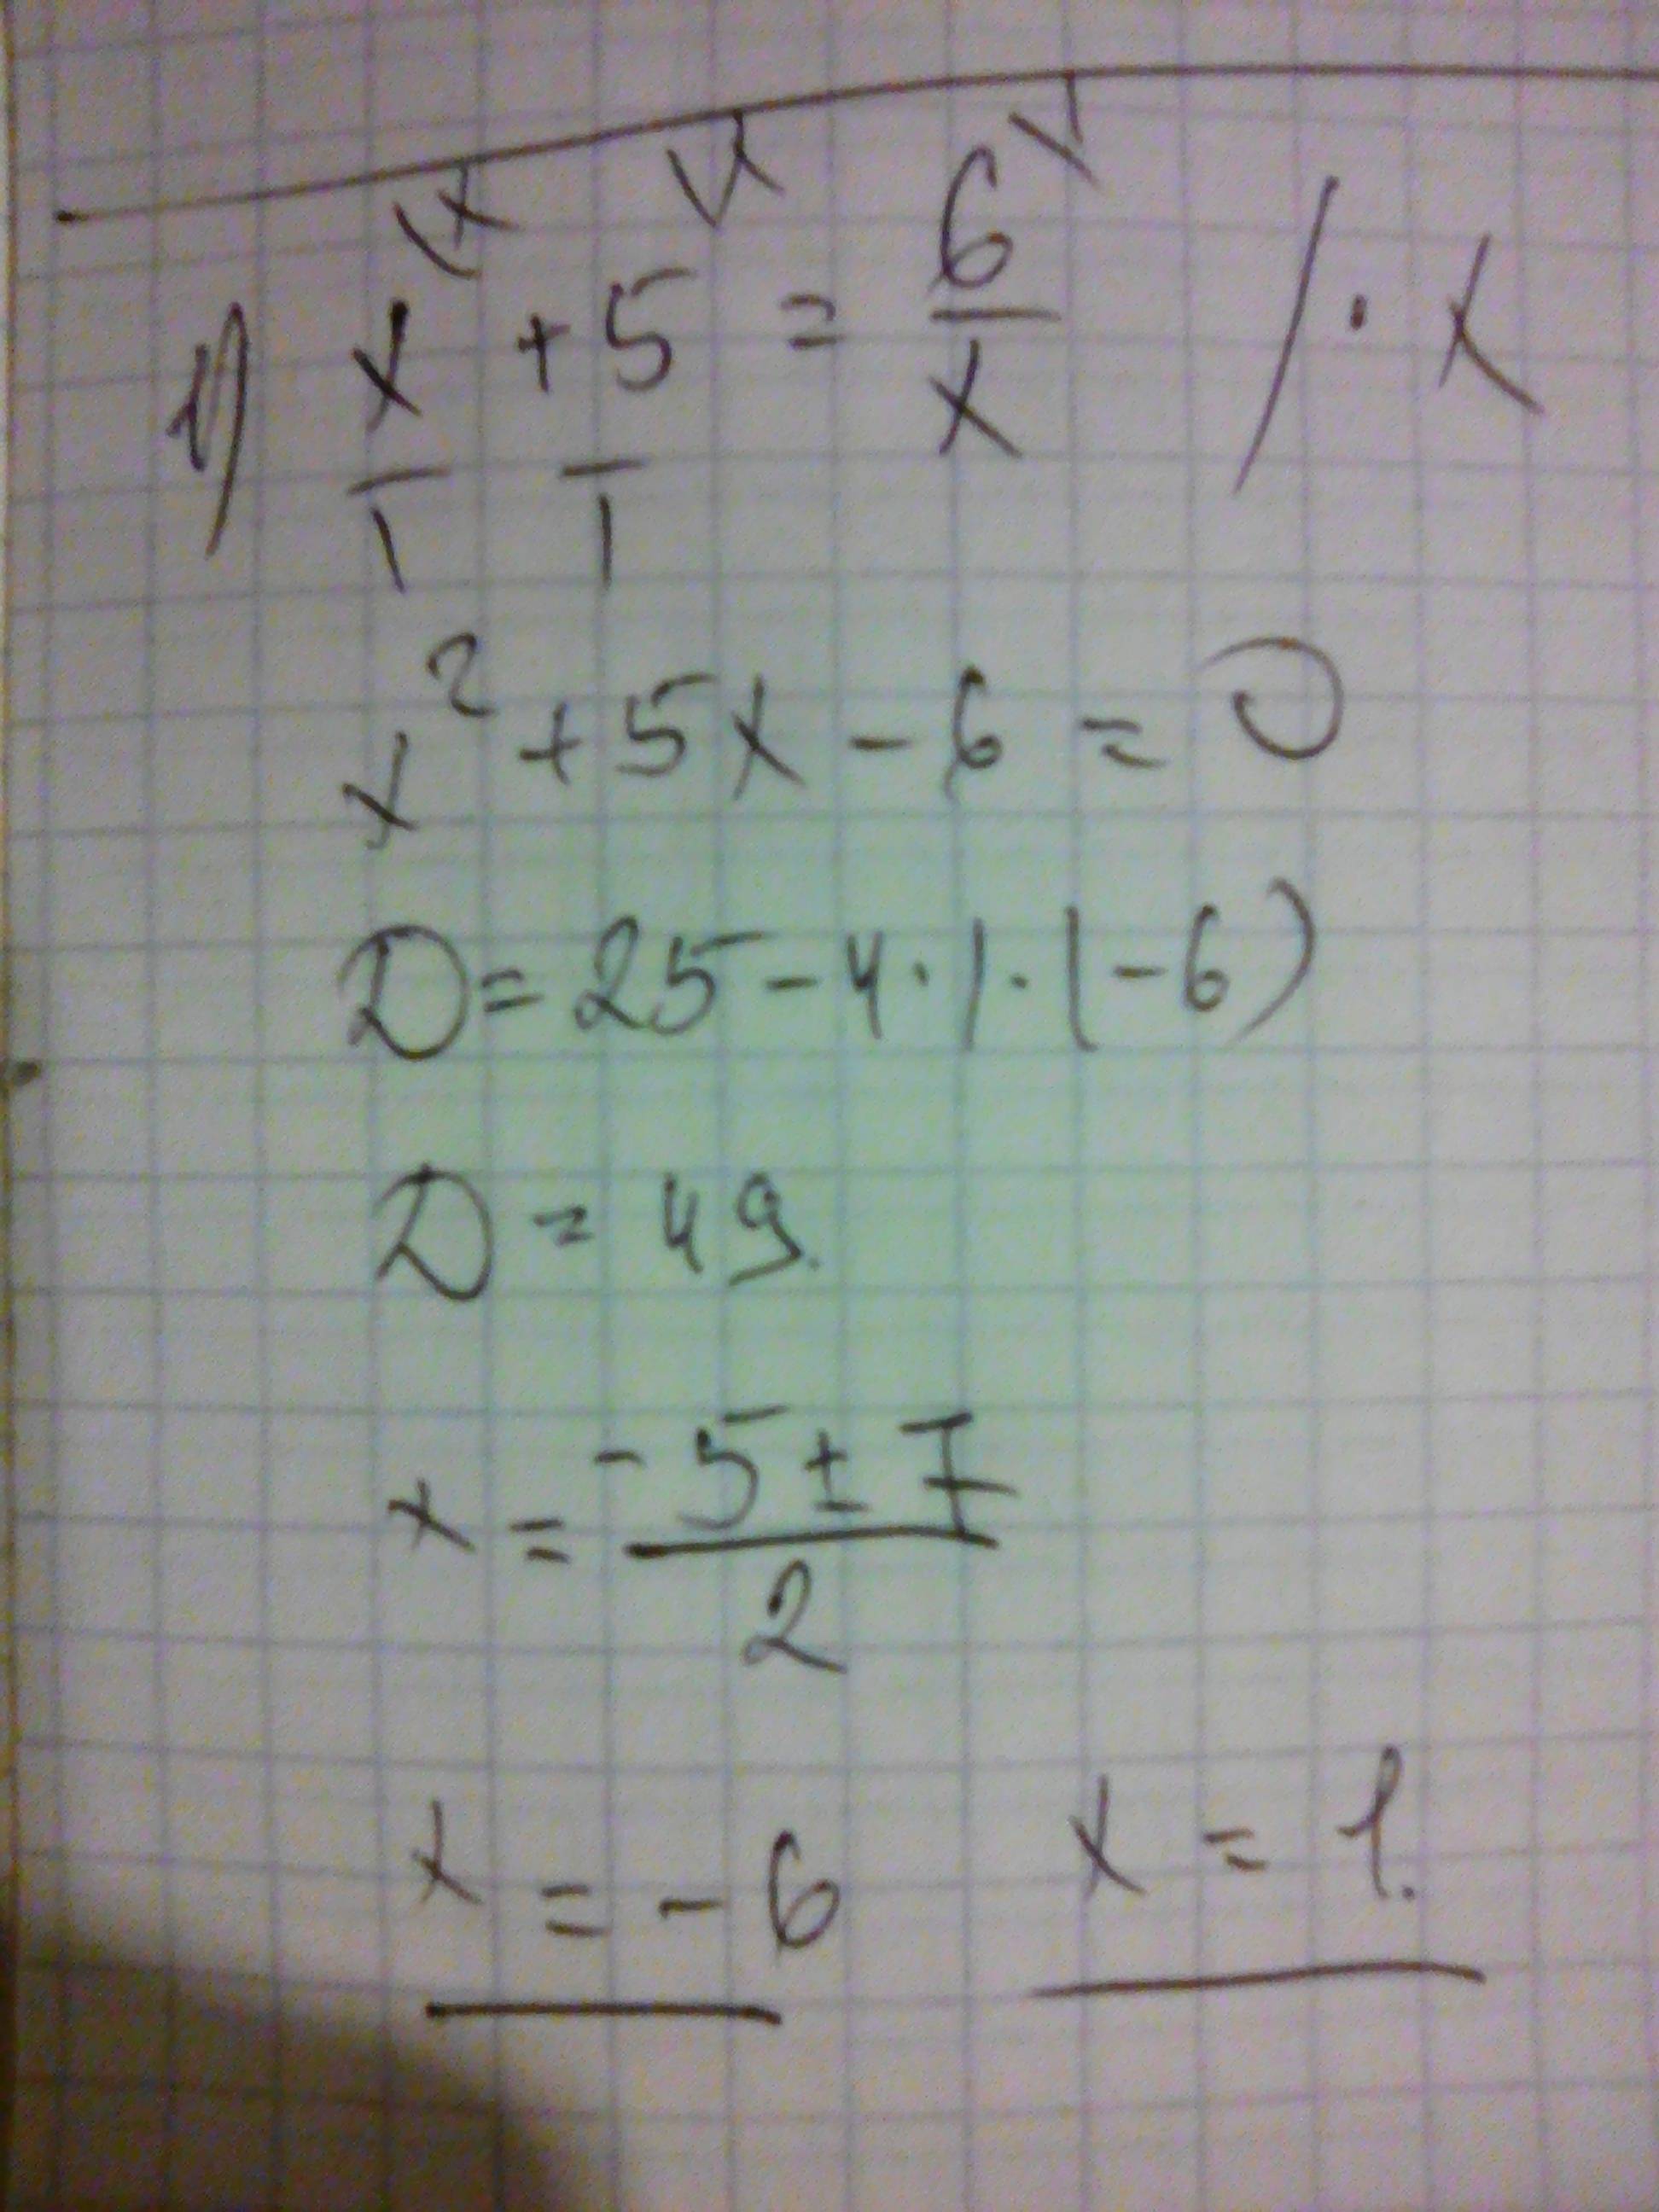 \x \x \1
1) x/1 + 5/1 = 6/x / · x
x² + 5x - 6 = 0
D = 25 - 4 · 1 · (-6)
D = 49.
x = (-5 ± 7)/2
x = -6 x = 1.